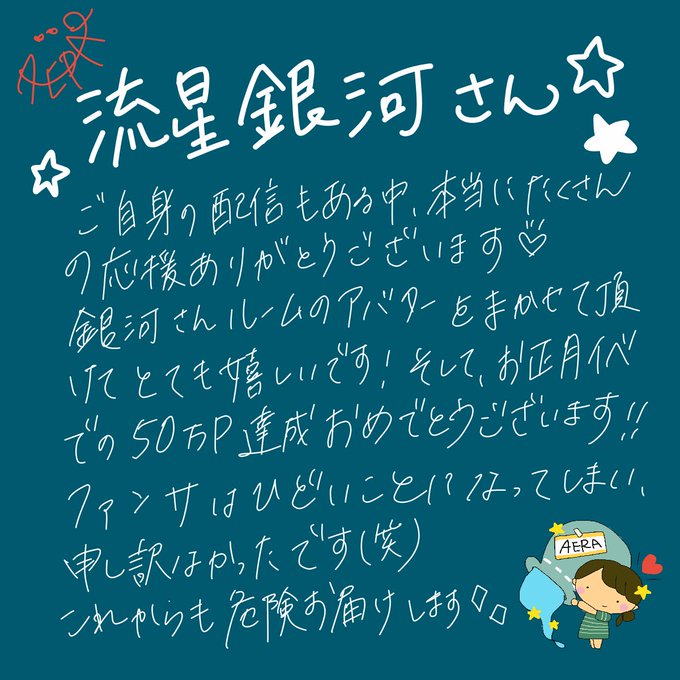 AERA
流星銀河さん
ご自身の配信もある中、本当にたくさん
の応援ありがとうございます♡
銀河さんルームのアバターをまかせて頂
けてとても嬉しいです!そして、お正月イベ
での50万P達成おめでとうございます!!
ファンサはひどいことになってしまい、
申し訳なかったです(笑)
これからも危険お届けします
AERA